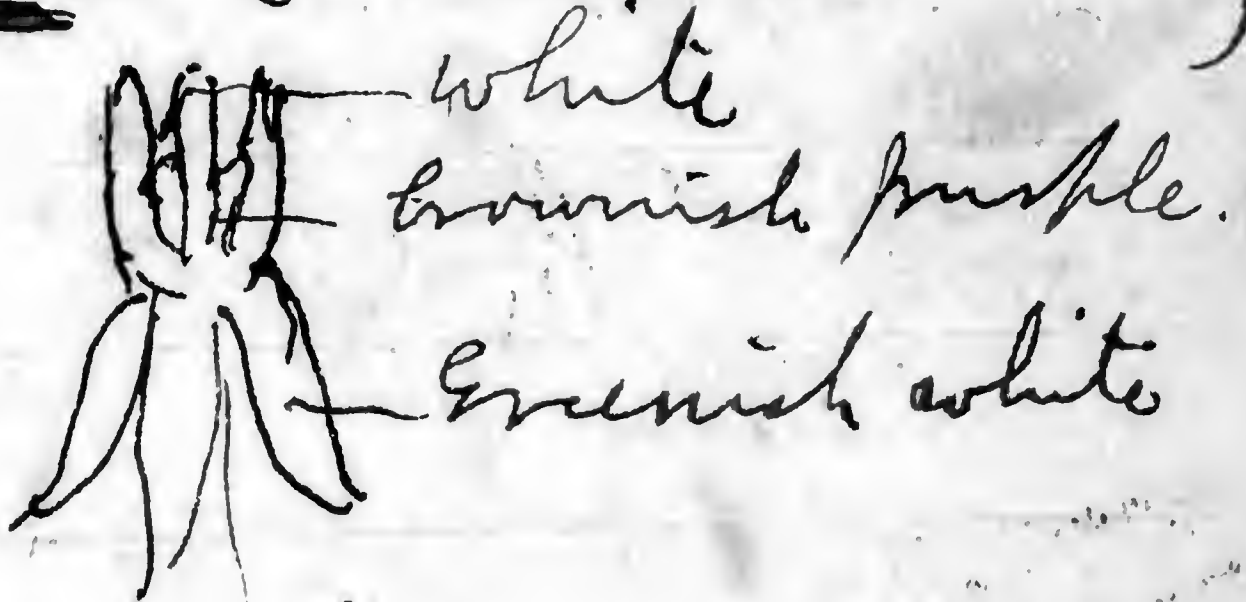 white
brownish purple.
Greenish white